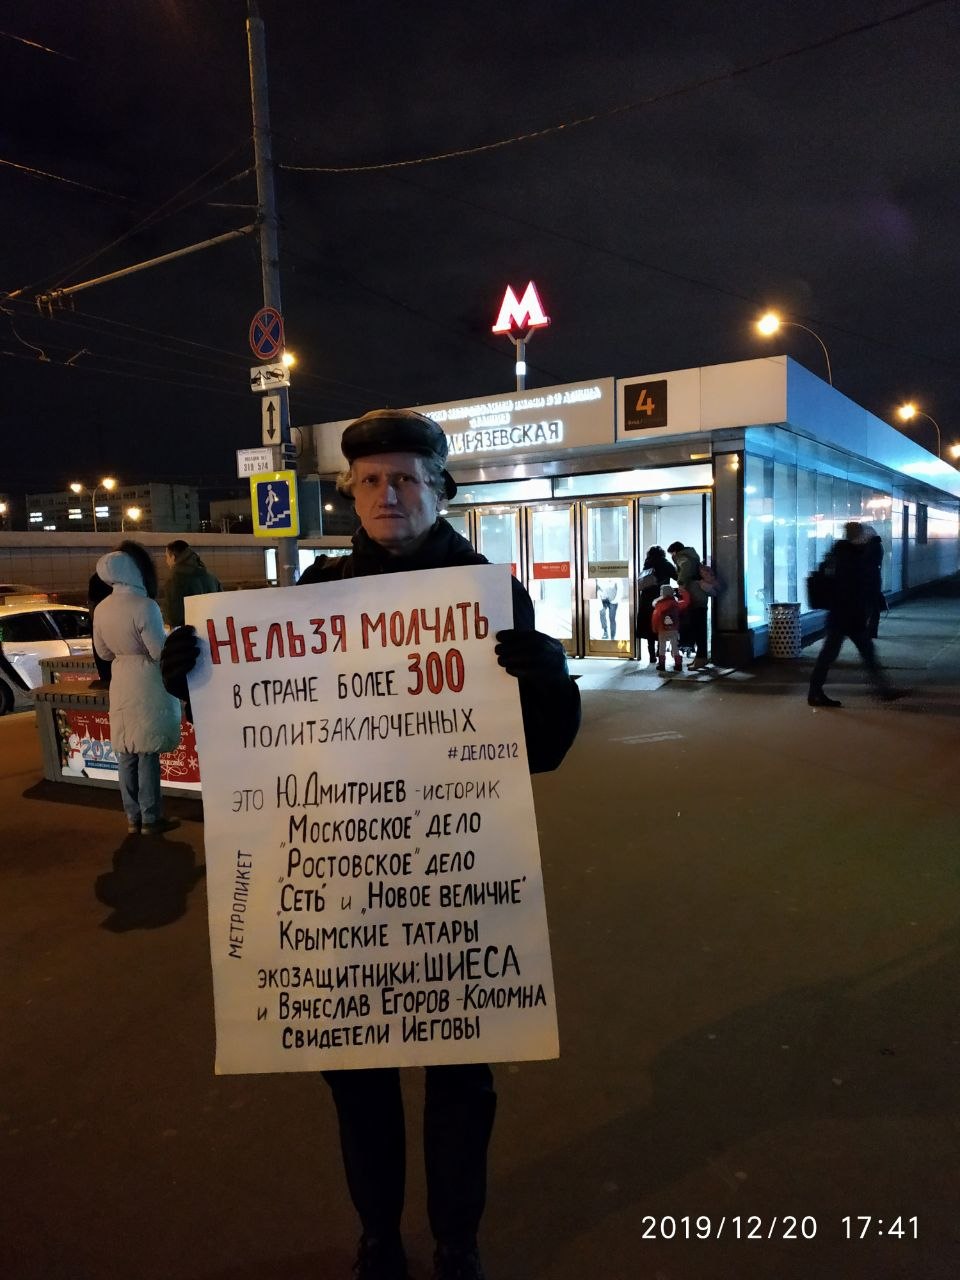 М
4
ВХОД
МИРЯЗЕВСКАЯ
НЕЛЬЗЯ МОЛЧАТЬ
В СТРАНЕ БОЛЕЕ 300
ПОЛИТЗАКЛЮЧЕННЫХ
#ДЕЛО212
ЭТО Ю.ДМИТРИЕВ - ИСТОРИК
„МОСКОВСКОЕ" ДЕЛО
„РОСТОВСКОЕ" ДЕЛО
„СЕТЬ" и „НОВОЕ ВЕЛИЧИЕ"
КРЫМСКИЕ ТАТАРЫ
ЭКОЗАЩИТНИКИ: ШИЕСА
и ВЯЧЕСЛАВ ЕГОРОВ - КОЛОМНА
СВИДЕТЕЛИ ИЕГОВЫ
МЕТРОПИКЕТ
2019/12/20 17:41